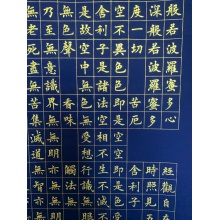 般若波羅蜜多心經觀自在
深般若波羅蜜多時照見五
度一切苦厄舍利子色
空不異色色即是空受想行
舍利子是諸法空相不生不滅
是故空中無色無受想行識
無色聲香味觸法無眼界
乃至無意識界無無明亦無
老死盡無苦集滅道無智亦無